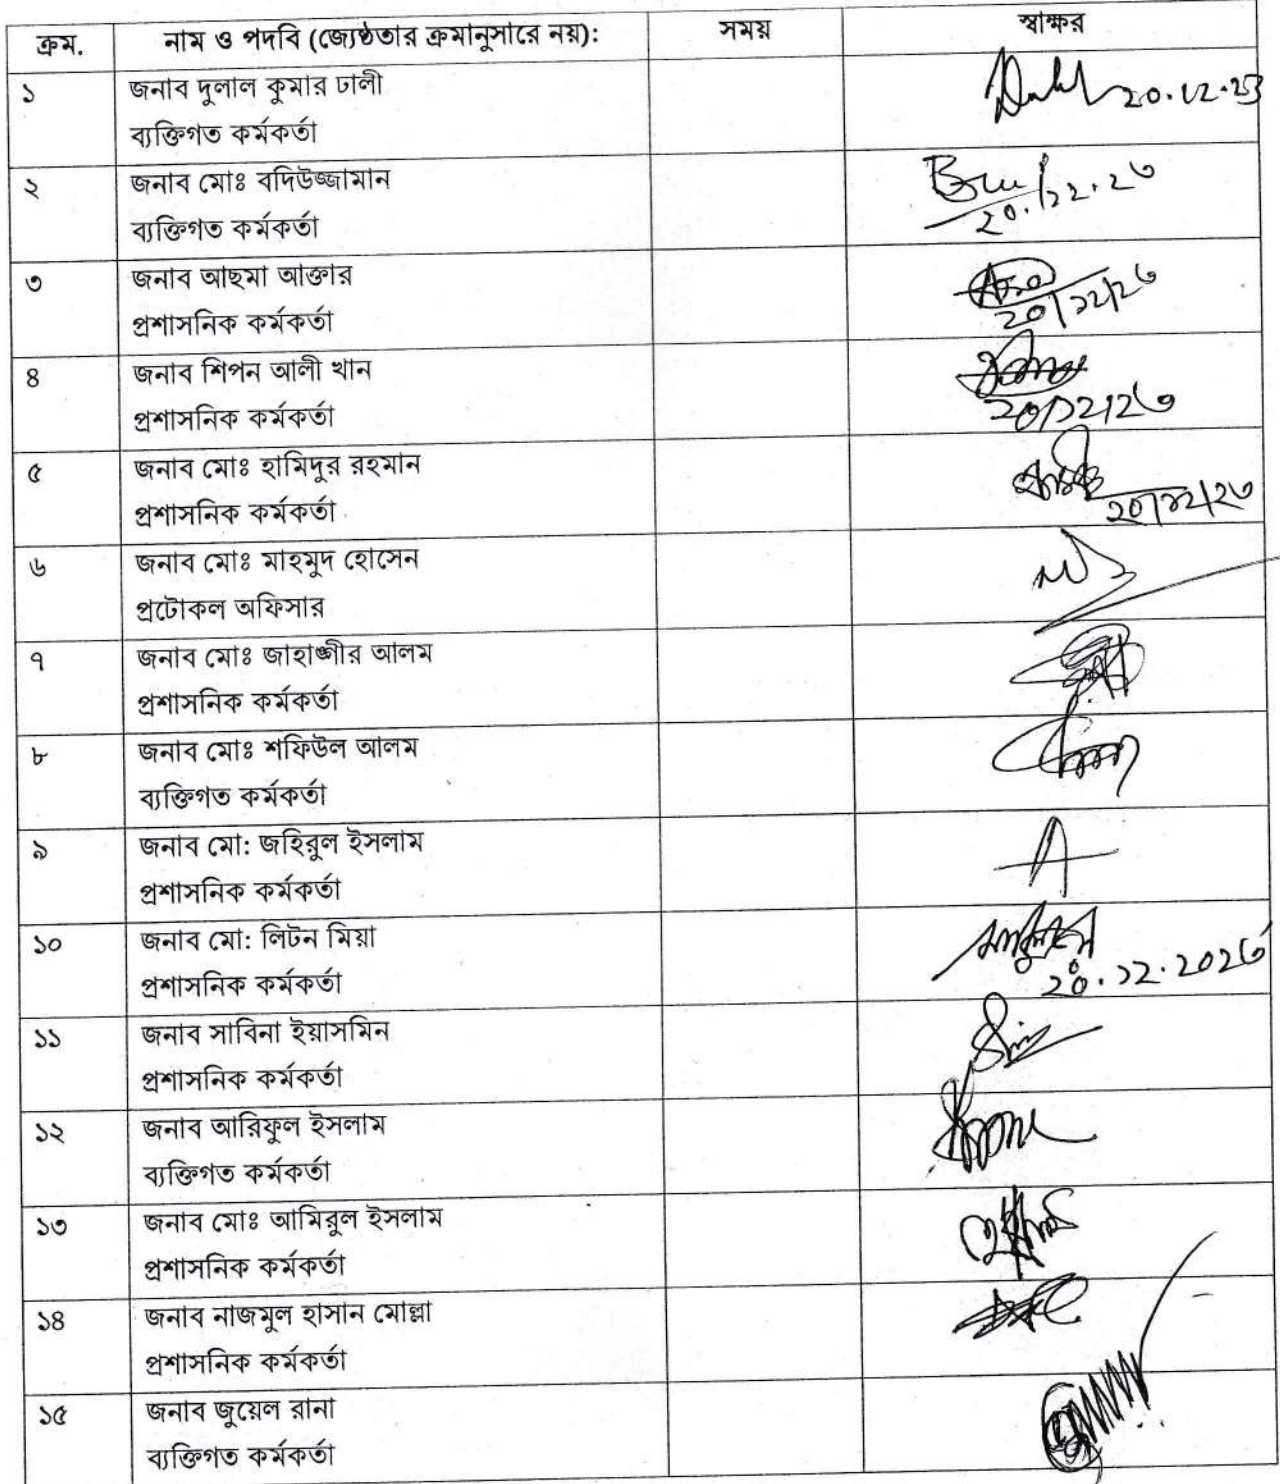 ক্রম. নাম ও পদবি (জ্যেষ্ঠতার ক্রমানুসারে নয়): সময় স্বাক্ষর
১ জনাব দুলাল কুমার ঢালী
ব্যক্তিগত কর্মকর্তা
20.12.23
২ জনাব মোঃ বদিউজ্জামান
ব্যক্তিগত কর্মকর্তা
২০.১২.২৩
৩ জনাব আছমা আক্তার
প্রশাসনিক কর্মকর্তা
২০/১২/২৩
৪ জনাব শিপন আলী খান
প্রশাসনিক কর্মকর্তা
২০/১২/২৩
৫ জনাব মোঃ হামিদুর রহমান
প্রশাসনিক কর্মকর্তা
২০/১২/২৩
৬ জনাব মোঃ মাহমুদ হোসেন
প্রটোকল অফিসার
৭ জনাব মোঃ জাহাঙ্গীর আলম
প্রশাসনিক কর্মকর্তা
৮ জনাব মোঃ শফিউল আলম
ব্যক্তিগত কর্মকর্তা
৯ জনাব মো: জহিরুল ইসলাম
প্রশাসনিক কর্মকর্তা
১০ জনাব মো: লিটন মিয়া
প্রশাসনিক কর্মকর্তা
২০.১২.২০২৩
১১ জনাব সাবিনা ইয়াসমিন
প্রশাসনিক কর্মকর্তা
১২ জনাব আরিফুল ইসলাম
ব্যক্তিগত কর্মকর্তা
১৩ জনাব মোঃ আমিরুল ইসলাম
প্রশাসনিক কর্মকর্তা
১৪ জনাব নাজমুল হাসান মোল্লা
প্রশাসনিক কর্মকর্তা
১৫ জনাব জুয়েল রানা
ব্যক্তিগত কর্মকর্তা